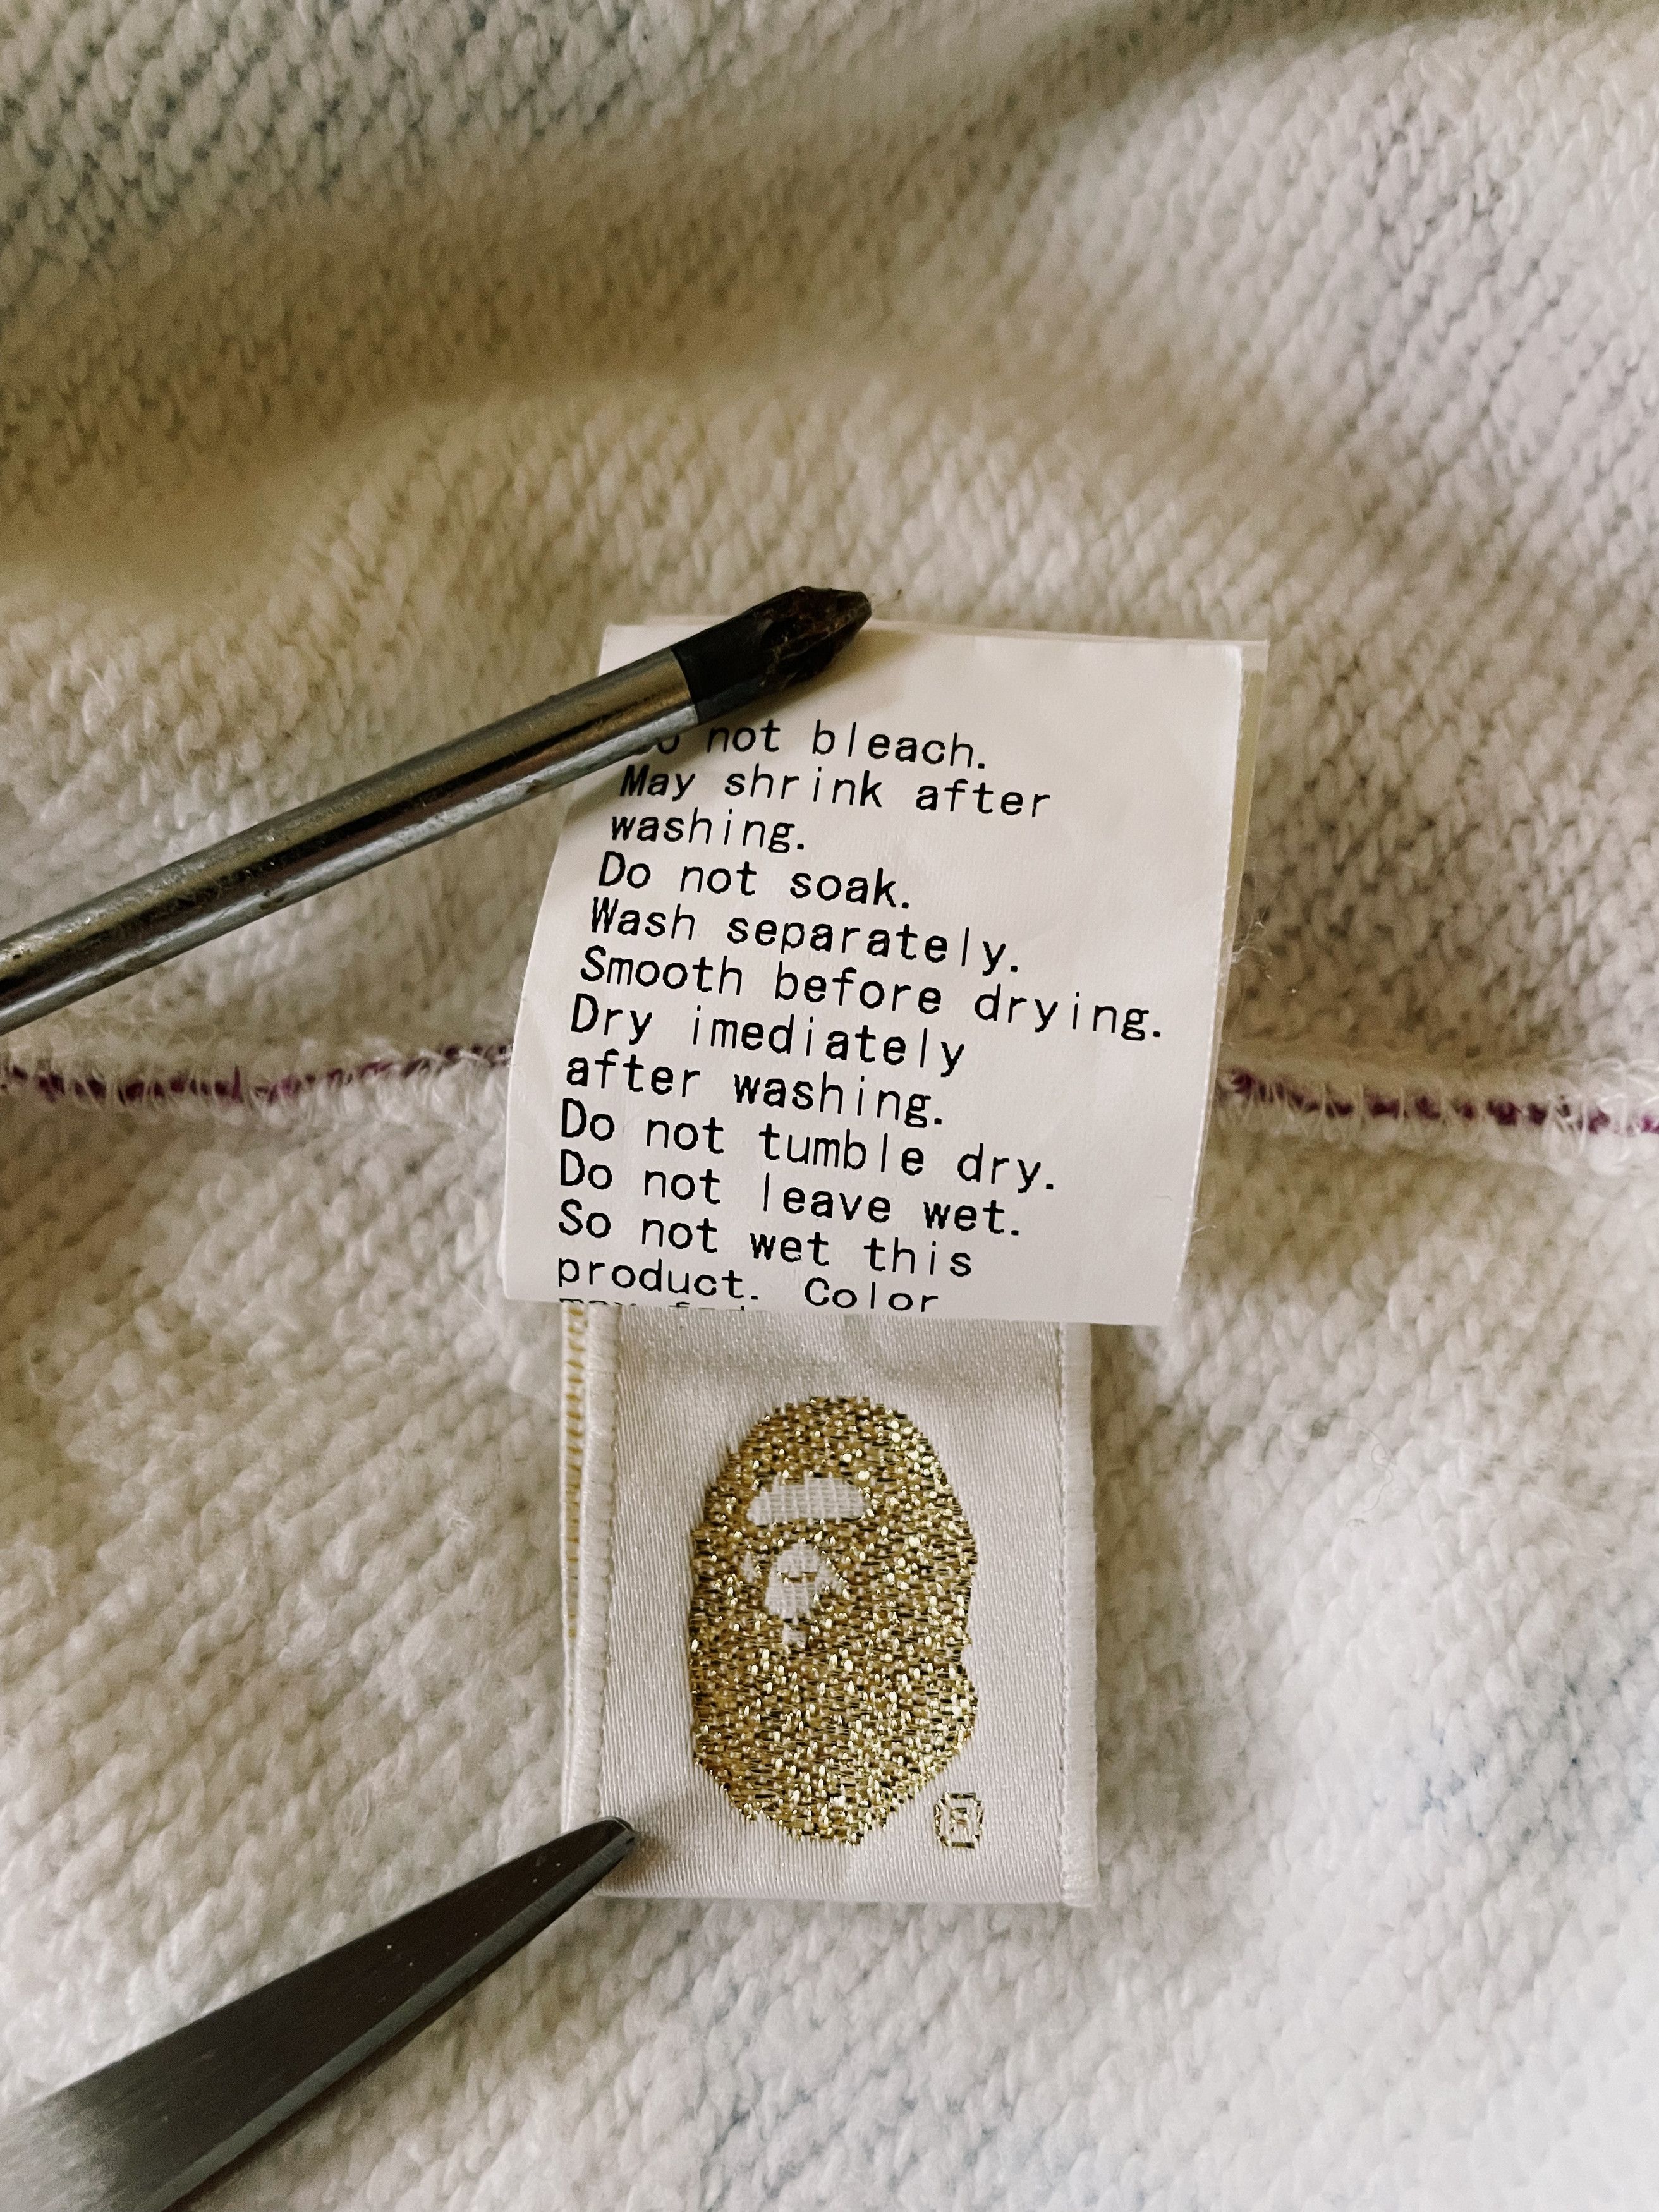 Do not bleach.
May shrink after
washing.
Do not soak.
Wash separately.
Smooth before drying.
Dry imediately
after washing.
Do not tumble dry.
Do not leave wet.
So not wet this
product. Color